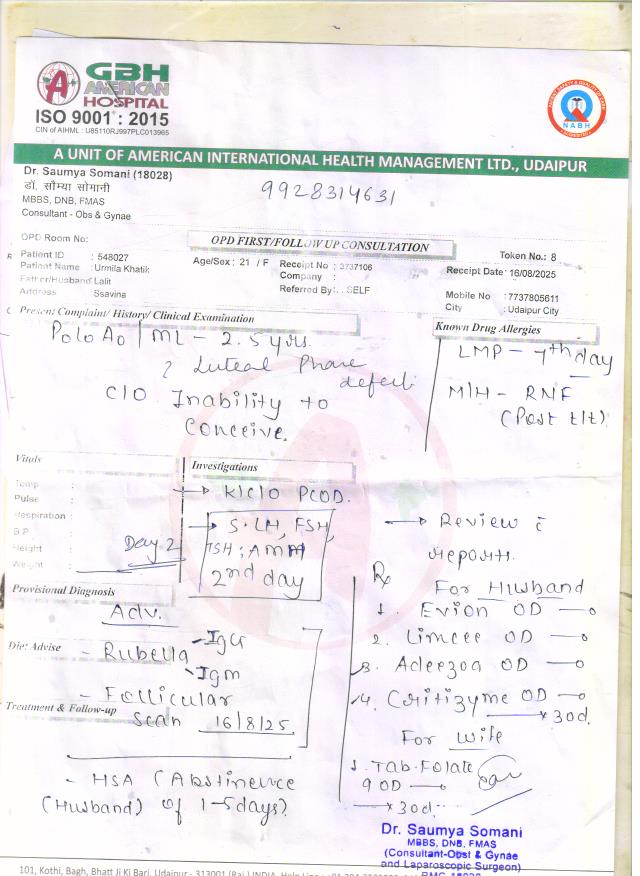 GBH
AMERICAN
HOSPITAL
ISO 9001 : 2015
CIN of AIHML : U85110RJ997PLC013965
NABH
A UNIT OF AMERICAN INTERNATIONAL HEALTH MANAGEMENT LTD., UDAIPUR
Dr. Saumya Somani (18028)
डॉ. सौम्या सोमानी
MBBS, DNB, FMAS
Consultant - Obs & Gynae
9928314631
OPD Room No:
OPD FIRST/FOLLOW UP CONSULTATION
Token No.: 8
Patient ID : 548027
Age/Sex : 21 / F
Receipt No : 3737106
Receipt Date : 16/08/2025
Patient Name : Urmila Khatik
Company :
Father/Husband Lalit
Referred By: . SELF
Mobile No : 7737805611
Address Ssavina
City : Udaipur City
Present Complaint/ History/ Clinical Examination
Known Drug Allergies
P0L0A0 / ML - 2.5 yrs.
? Luteal Phase defect
C/O Inability to
conceive.
LMP - 7th day
M/H - RNF
(Post t/t)
Vitals
Investigations
Temp :
Pulse :
Respiration :
B.P :
Height :
Weight :
Day 2
K/C/O PCOD.
S. LH, FSH,
TSH, AMH
2nd day
Review c̄
reports.
Provisional Diagnosis
Adv.
Diet Advise
- Rubella - IgG
- IgM
- Follicular
Treatment & Follow-up
scan 16/8/25
- HSA (Abstinence
(Husband) of 1-5 days)
Rx
For Husband
1. Evion OD
2. Limcee OD
3. OD
4. OD
x 30d.
For Wife
1. Tab. Folate
9 OD
x 30d.
Dr. Saumya Somani
MBBS, DNB, FMAS
(Consultant-Obst & Gynae
and Laparoscopic Surgeon)
101, Kothi, Bagh, Bhatt Ji Ki Bari, Udaipur - 313001 (Raj.) INDIA